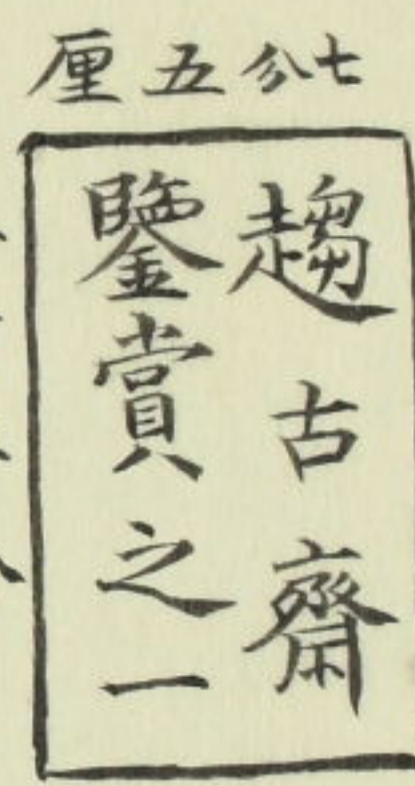 七分五厘
趨古齋
鑒賞之一